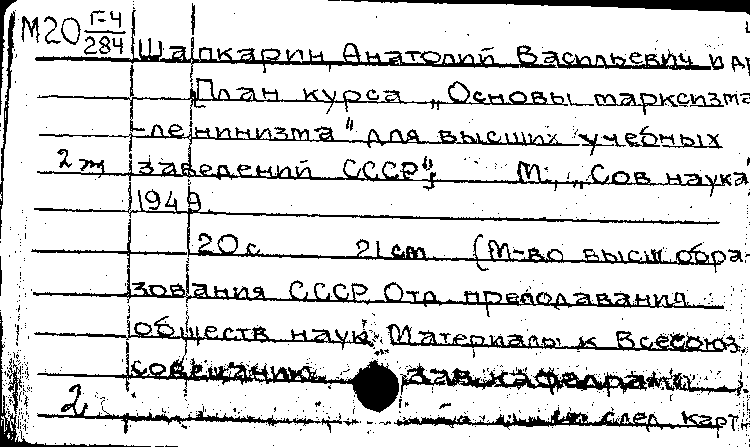 М20 Г-4/284
Шапкарин, Анатолий Васильевич и др
План курса „Основы марксизма
-ленинизма" для высших учебных
2 т заведений СССР". М., „Сов наука"
1949.
20 с 21 cm (М-во высш обра-
зования СССР. Отд. преподавания
обществ наук. Материалы к Всесоюз.
совещанию зав кафедрами
2 см след. карт